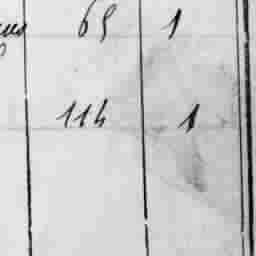 65 1
114 1